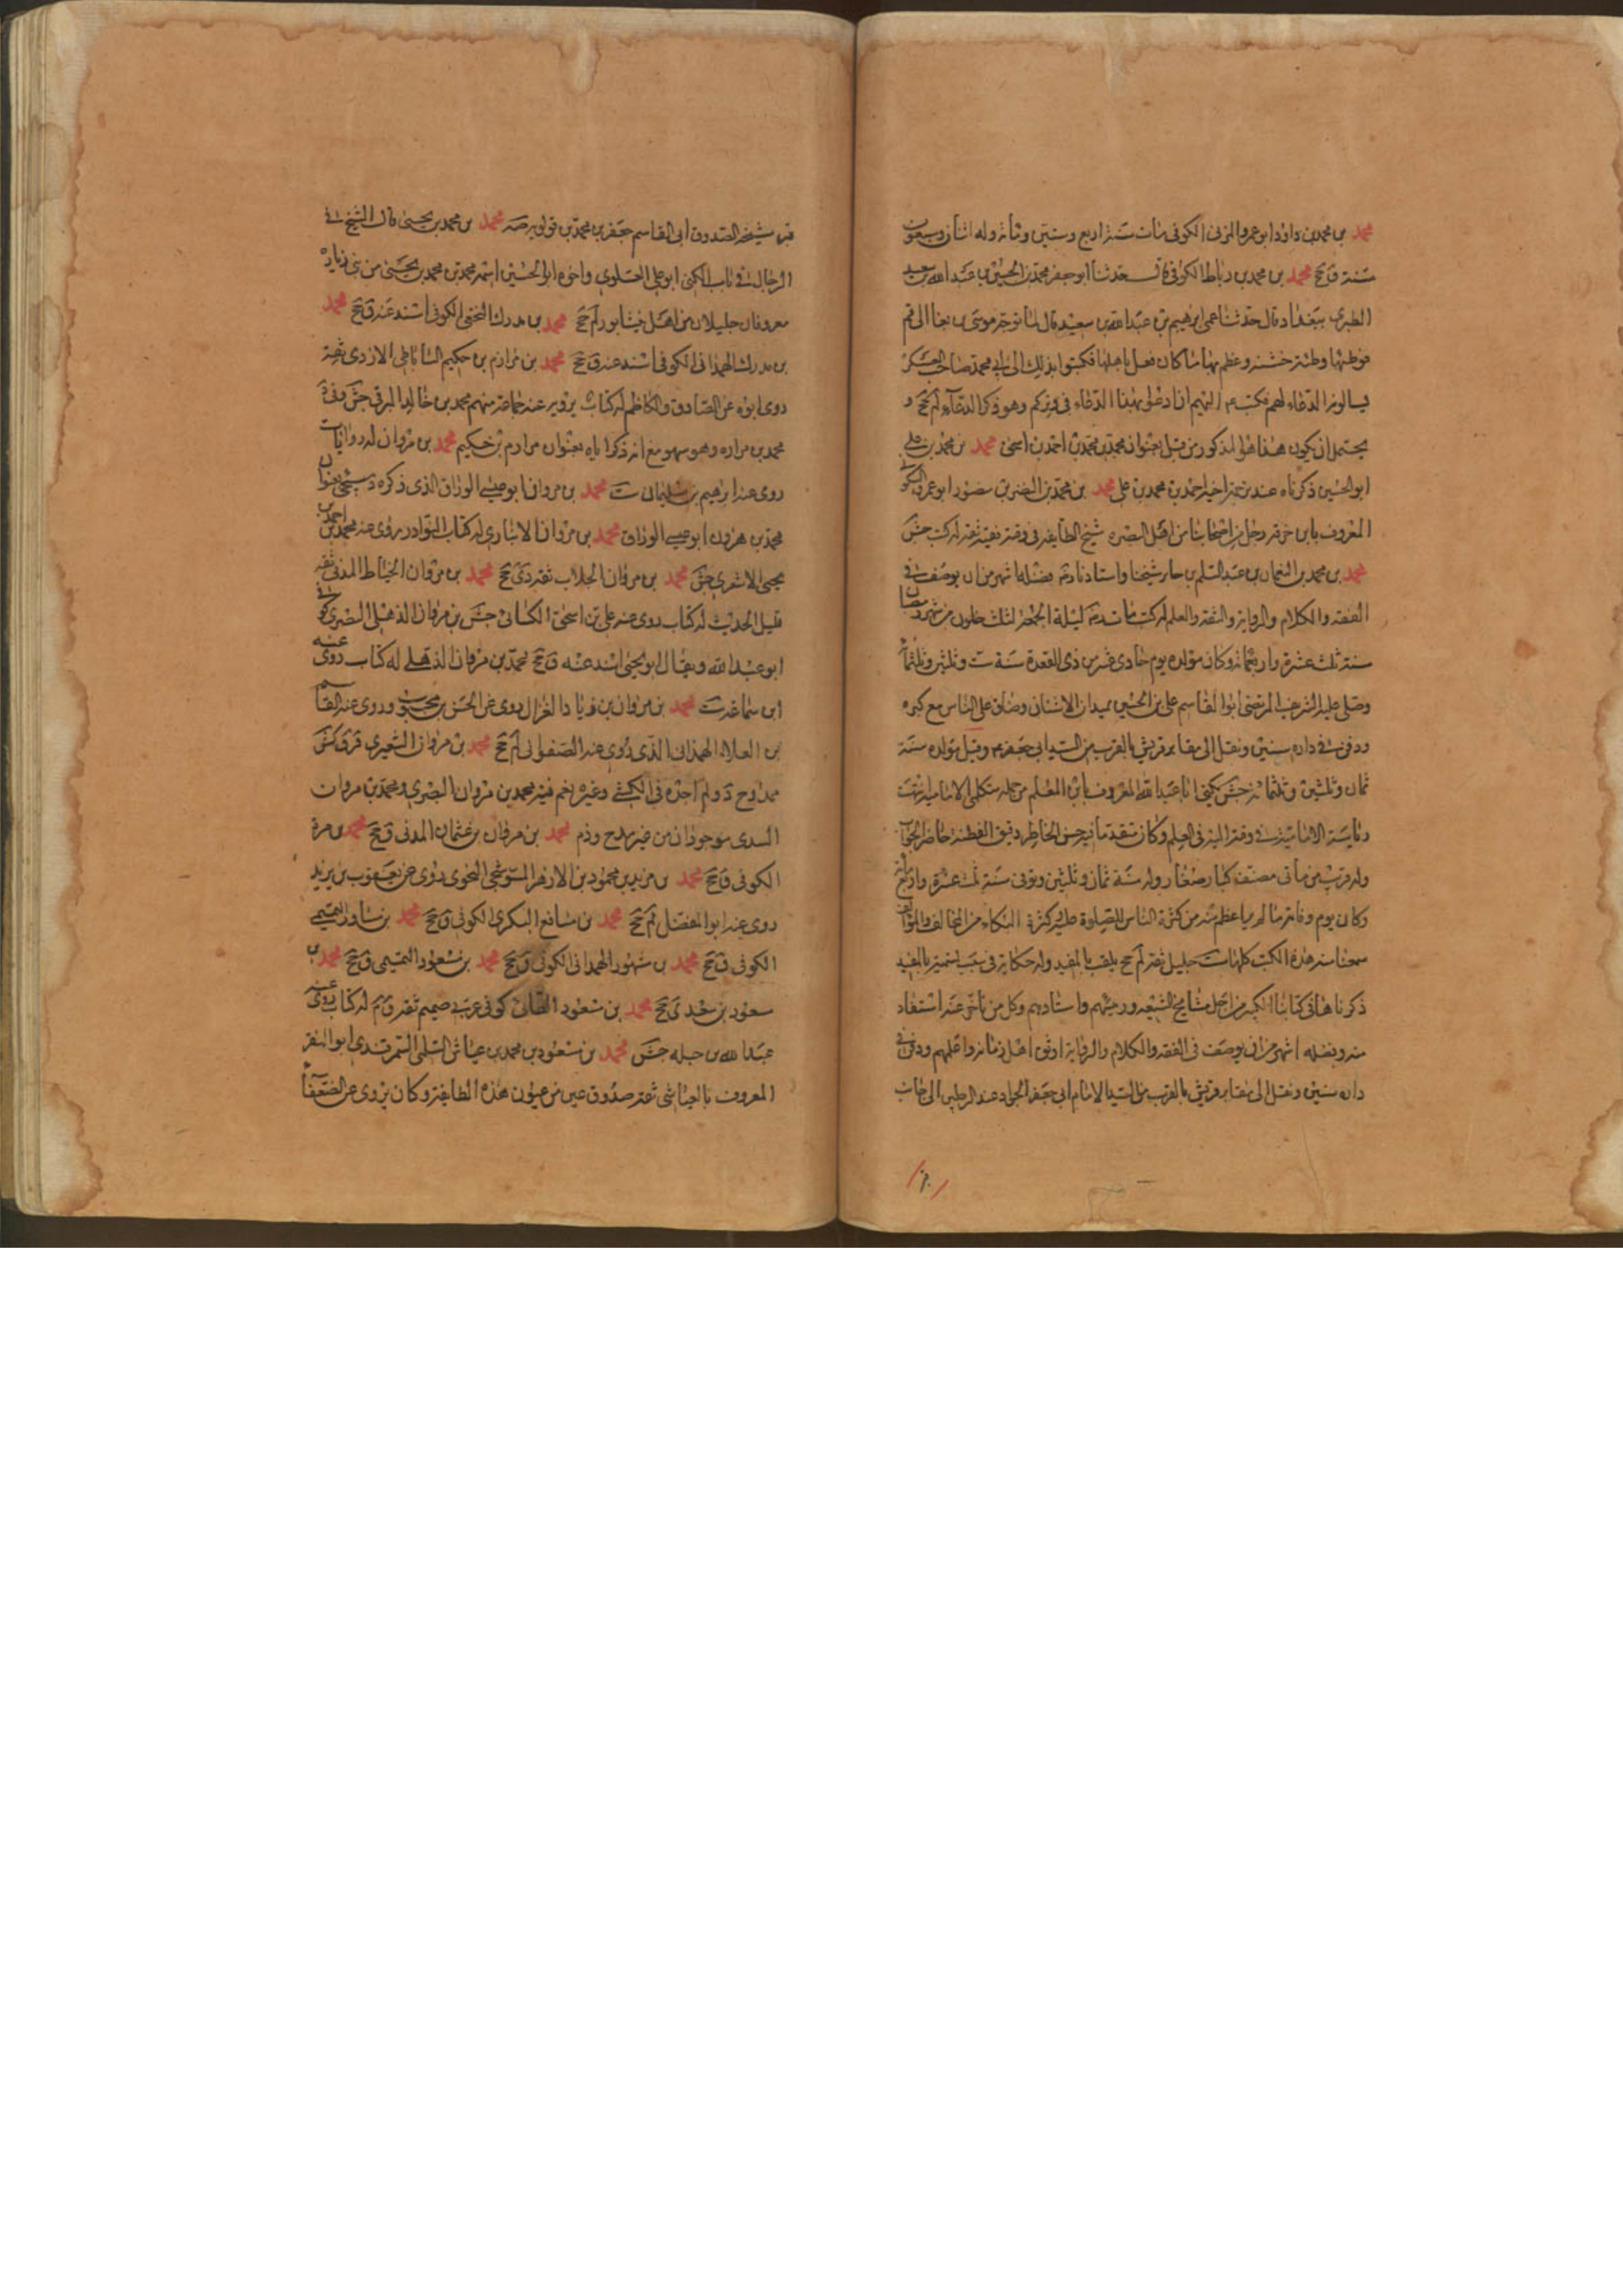 محمد بن محمد بن داود ابو عمرو المزنی الکوفی مات سنة اربع وستین ومائة وله اثنان وسبعون
سنة ق جخ محمد بن محمد بن رباط الکوفی حدثنا ابو جعفر محمد بن الحسین بن عبدالله بن سعید
الطبری ببغداد قال حدثنا عمی ابرهیم بن عبدالله بن سعید قال لما توجه موسی بن بغا الی قم
فوطئها وطئة خشنة وعظم بها ما کان فعل باهلها فکتبوا بذلک الی ابی محمد صاحب العسکر
یسالونه الدعاء لهم فکتب الیهم ان ادعوا بهذا الدعاء فی وترکم وهو ذکر الدعاء لم جخ و
یحتمل ان یکون هذا هو المذکور من قبل بعنوان محمد بن محمد بن احمد بن اسحق محمد بن محمد بن علی
ابو الحسین ذکرناه عند ترجمة اخیه احمد بن محمد بن علی محمد بن محمد بن النضر بن منصور ابو عمرو السکونی
المعروف بابن خرقه رجل من اصحابنا من اهل البصره شیخ الطایفه فی وقته فقیه ثقه له کتب جش
محمد بن محمد بن النعمان بن عبد السلم بن جابر شیخنا واستادنا رضه فضله اشهر من ان یوصف فی
الفقه والکلام والروایه والثقه والعلم له کتب مات رضه لیلة الجمعه لثلث خلون من شهر رمضان
سنة ثلث عشرة واربعمائة وکان مولده یوم حادی عشر من ذی القعدة سنة ست وثلثین وثلثمائة
وصلی علیه الشریف المرتضی ابو القاسم علی بن الحسین بمیدان الاشنان وضاق علی الناس مع کبره
ودفن فی داره سنین ونقل الی مقابر قریش بالقرب من السید ابی جعفر وقیل مولده سنة
ثمان وثلثین وثلثمائة جش یکنی ابا عبدالله المعروف بابن المعلم من جمله متکلمی الامامیه انتهت
رئاسة الامامیة فی وقته الیه فی العلم وکان متقدما فیه حسن الخاطر دقیق الفطنه حاضر الجواب
وله قریب من مأتی مصنف کبار وصغار ولد سنة ثمان وثلثین وتوفی سنة ثلث عشرة واربعمائة
وکان یوم وفاته لم یر اعظم منه من کثرة الناس للصلوة علیه وکثرة البکاء من المخالف والموالف
سمعنا منه هذه الکتب کلها ست جلیل ثقه لم جخ یلقب بالمفید وله حکایة فی سبب تسمیته بالمفید
ذکرناها فی کتابنا الکبیر من اجل مشایخ الشیعه ورئیسهم واستادهم وکل من تاخر عنه استفاد
منه وفضله اشهر من ان یوصف فی الفقه والکلام والروایة اوثق اهل زمانه واعلمهم ودفن فی
داره سنین ونقل الی مقابر قریش بالقرب من السید الامام ابی جعفر الجواد عند الرجلین الی جانب
قبر شیخه الصدوق ابی القاسم جعفر بن محمد بن قولویه صه محمد بن محمد بن یحیی قال الشیخ فی
الرجال فی باب الکنی ابو علی العلوی واخوه ابو الحسین اسمه محمد بن محمد بن یحیی من بنی زبارة
معروفان جلیلان من اهل نیشابور لم جخ محمد بن مدرک النخعی الکوفی اسند عنه ق جخ محمد
بن مدرک الهمدانی الکوفی اسند عنه ق جخ محمد بن مرازم بن حکیم الساباطی الازدی ثقة
روی ابوه عن الصادق والکاظم له کتاب یرویه عنه جماعة منهم محمد بن خالد البرقی جش وفی ق
محمد بن مراره وهو سهو مع انه ذکر اباه بعنوان مرازم بن حکیم محمد بن مروان له روایات
روی عنه ابرهیم بن سلیمان ست محمد بن مروان ابو عیسی الوراق الذی ذکره د سیجئ بعنوان
محمد بن هرون ابو عیسی الوراق محمد بن مروان الانباری له کتاب النوادر روی عنه محمد بن احمد بن
یحیی الاشعری جش محمد بن مروان الجلاب ثقه دی جخ محمد بن مروان الحناط المدنی ثقه
قلیل الحدیث له کتاب روی عنه علی بن اسحق الکسائی جش محمد بن مروان الذهلی البصری کوفی
ابو عبدالله ویقال ابو یحیی اسند عنه ق جخ محمد بن مروان الذهلی له کتاب روی عنه
ابن سماعه ست محمد بن مروان بن زیاد الغزال روی عن الحسن بن محبوب وروی عنه القاسم
بن العلاء الهمدانی الذی روی عنه الصفوانی لم جخ محمد بن مروان الشعیری قر ق کش
ممدوح د ولم اجده فی الکشی وغیره نعم فیه محمد بن مروان البصری ومحمد بن مروان
السدی موجودان من غیر مدح وذم محمد بن مروان بن عثمان المدنی ق جخ محمد بن مرة
الکوفی ق جخ محمد بن مزید بن محمود بن الازهر النحوی روی عن یعقوب بن یزید
روی عنه ابو المفضل لم جخ محمد بن مسافع البکری الکوفی ق جخ محمد بن مساور التمیمی
الکوفی ق جخ محمد بن مسهور الهمدانی الکوفی ق جخ محمد بن مسعود التمیمی ق جخ محمد بن
مسعود بن سعد ی جخ محمد بن مسعود الطائی کوفی عربی صمیم ثقه ق م له کتاب روی عنه
عبدالله بن جبله جش محمد بن مسعود بن محمد بن عیاش السلمی السمرقندی ابو النضر
المعروف بالعیاشی ثقه صدوق عین من عیون هذه الطایفه وکان یروی عن الضعفاء